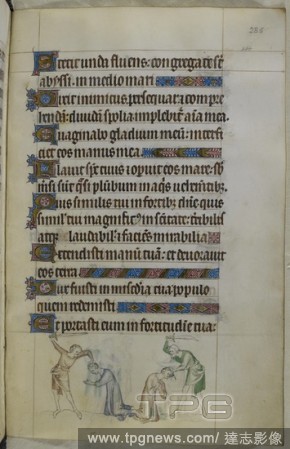 286
Stetit unda fluens: congregate st
abyssi: in medio mari
Dixit inimicus. persequar z compre
hendā: diuidā spolia. implebit' aīa mea
Euaginabo gladium meū: interfi
ciet eos manus mea
Flauit sp̄c tuus z operuit eos mare: sb
Quis similis tui in fortib; dn̄e: quis
similis tui magnific' in sc̄itate: t'ribilis
atq; laudabil' z faciēs mirabilia
Extendisti manū tuā: et deuorauit
eos terra
Dux fuisti in miscd'ia tua: populo
quem redemisti
Et portasti eum in fortitudīe tua:
TPG
www.tpgnews.com/達志影像